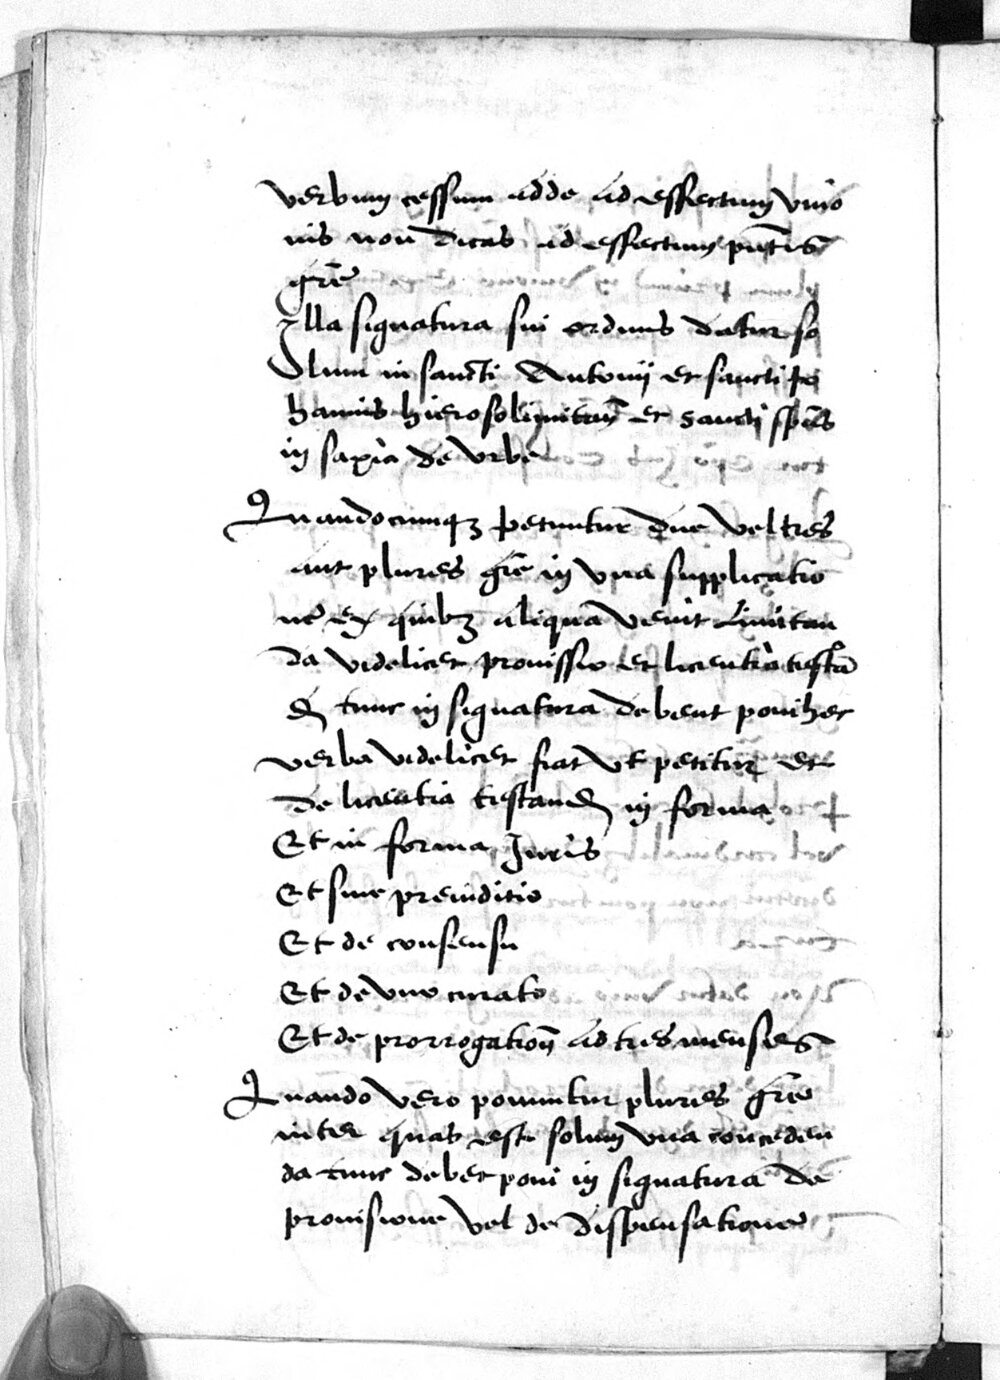 verbum cessum adde ad effectum vnio
nis non dicas ad effectum pn̄tis
grē
Illa signatura sui ordinis datur so
lum in sancti Antonij et sancti Jo
hannis hierosolimitan̄ et sancti spūs
in saxia de vrbe
Quandocumqꝫ petuntur due vel tres
aut plures grē in vna supplicatio
ne ex quibꝫ aliqua venit limitan
da videlicet prouissio et licentia testā
di tunc in signatura debent poni hec
verba videlicet fiat vt petitur et
de licentia testandi in forma
Et in forma Juris
Et sine preiuditio
Et de consensu
Et de vno curato
Et de prorrogation̄ ad tres menses
Quando vero ponuntur plures grē
inter quas est solum vna conceden
da tunc debet poni in signatura de
prouisione vel de dispensatione